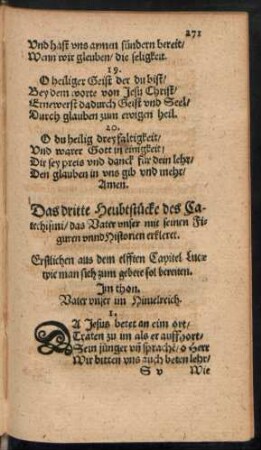 271
Vnd hast vns armen sündern bereit/
Wenn wir glauben/ die seligkeit.
19.
O heiliger Geist der du bist/
Bey dem worte von Jesu Christ/
Ernewerst dadurch Geist vnd Seel/
Durch glauben zum ewigen heil.
20.
O du heilig dreyfaltigkeit/
Vnd warer Gott in einigkeit/
Dir sey preis vnd danck für dein lehr/
Den glauben in vns gib vnd mehr/
Amen.
Das dritte Heubtstücke des Ca-
techismi/ das Vater vnser mit seinen Fi-
guren vnnd Historien erkleret.
Erstlichen aus dem elfften Capitel Luce
wie man sich zum gebete sol bereiten.
Im thon.
Vater vnser im Himelreich.
1.
DA Jesus betet an eim ort/
Traten zu im als er auffhort/
Sein jünger vñ sprachē/ o Herr
Wir bitten vns auch beten lehr/
S v Wie